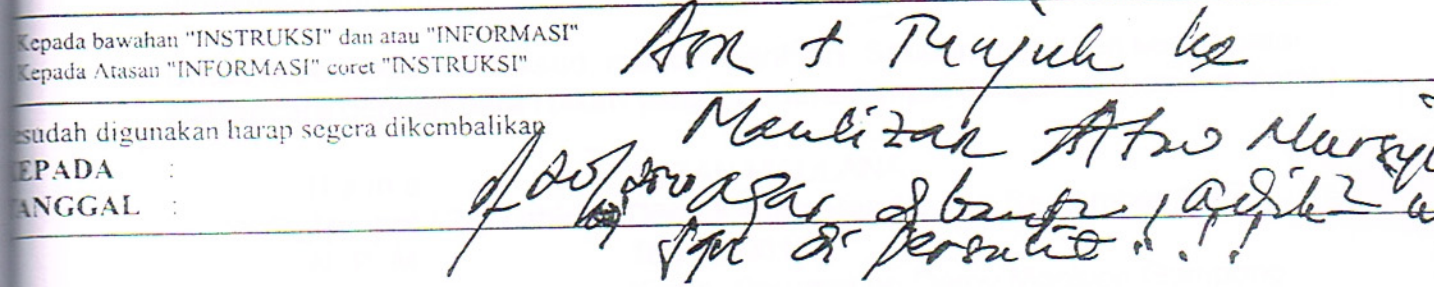 Kepada bawahan "INSTRUKSI" dan atau "INFORMASI"
Kepada Atasan "INFORMASI" coret "INSTRUKSI"
Sesudah digunakan harap segera dikembalikan
KEPADA :
TANGGAL :
ke
Maulizar Atau
agar dibantu, adik2
di persulit...!!